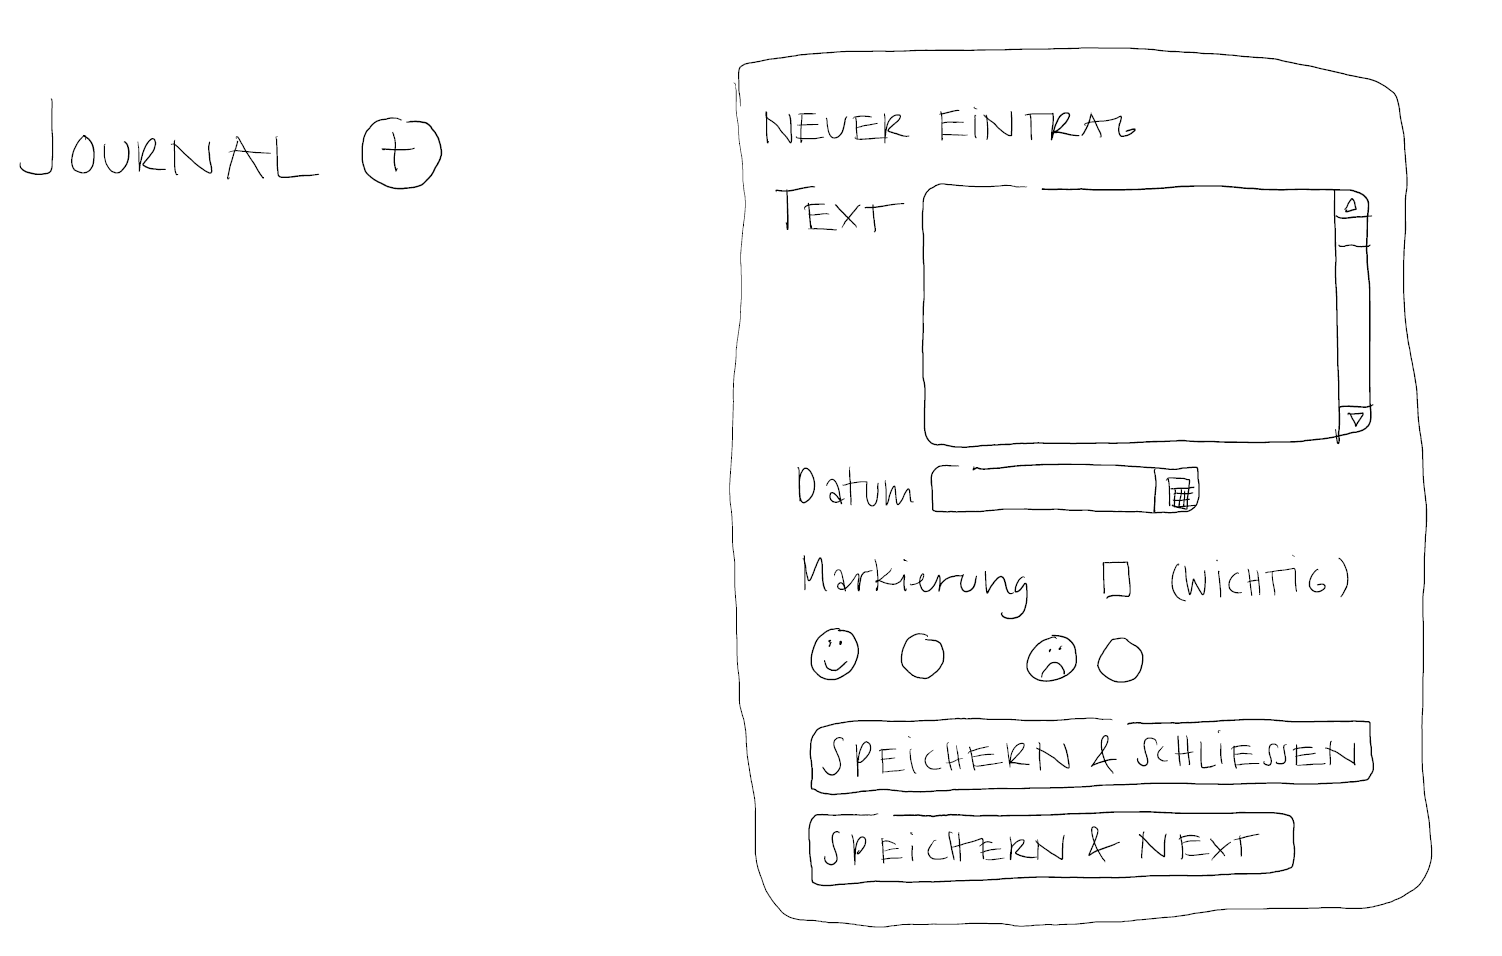 JOURNAL +
NEUER EINTRAG
TEXT
Datum
Markierung (WICHTIG)
SPEICHERN & SCHLIESSEN
SPEICHERN & NEXT